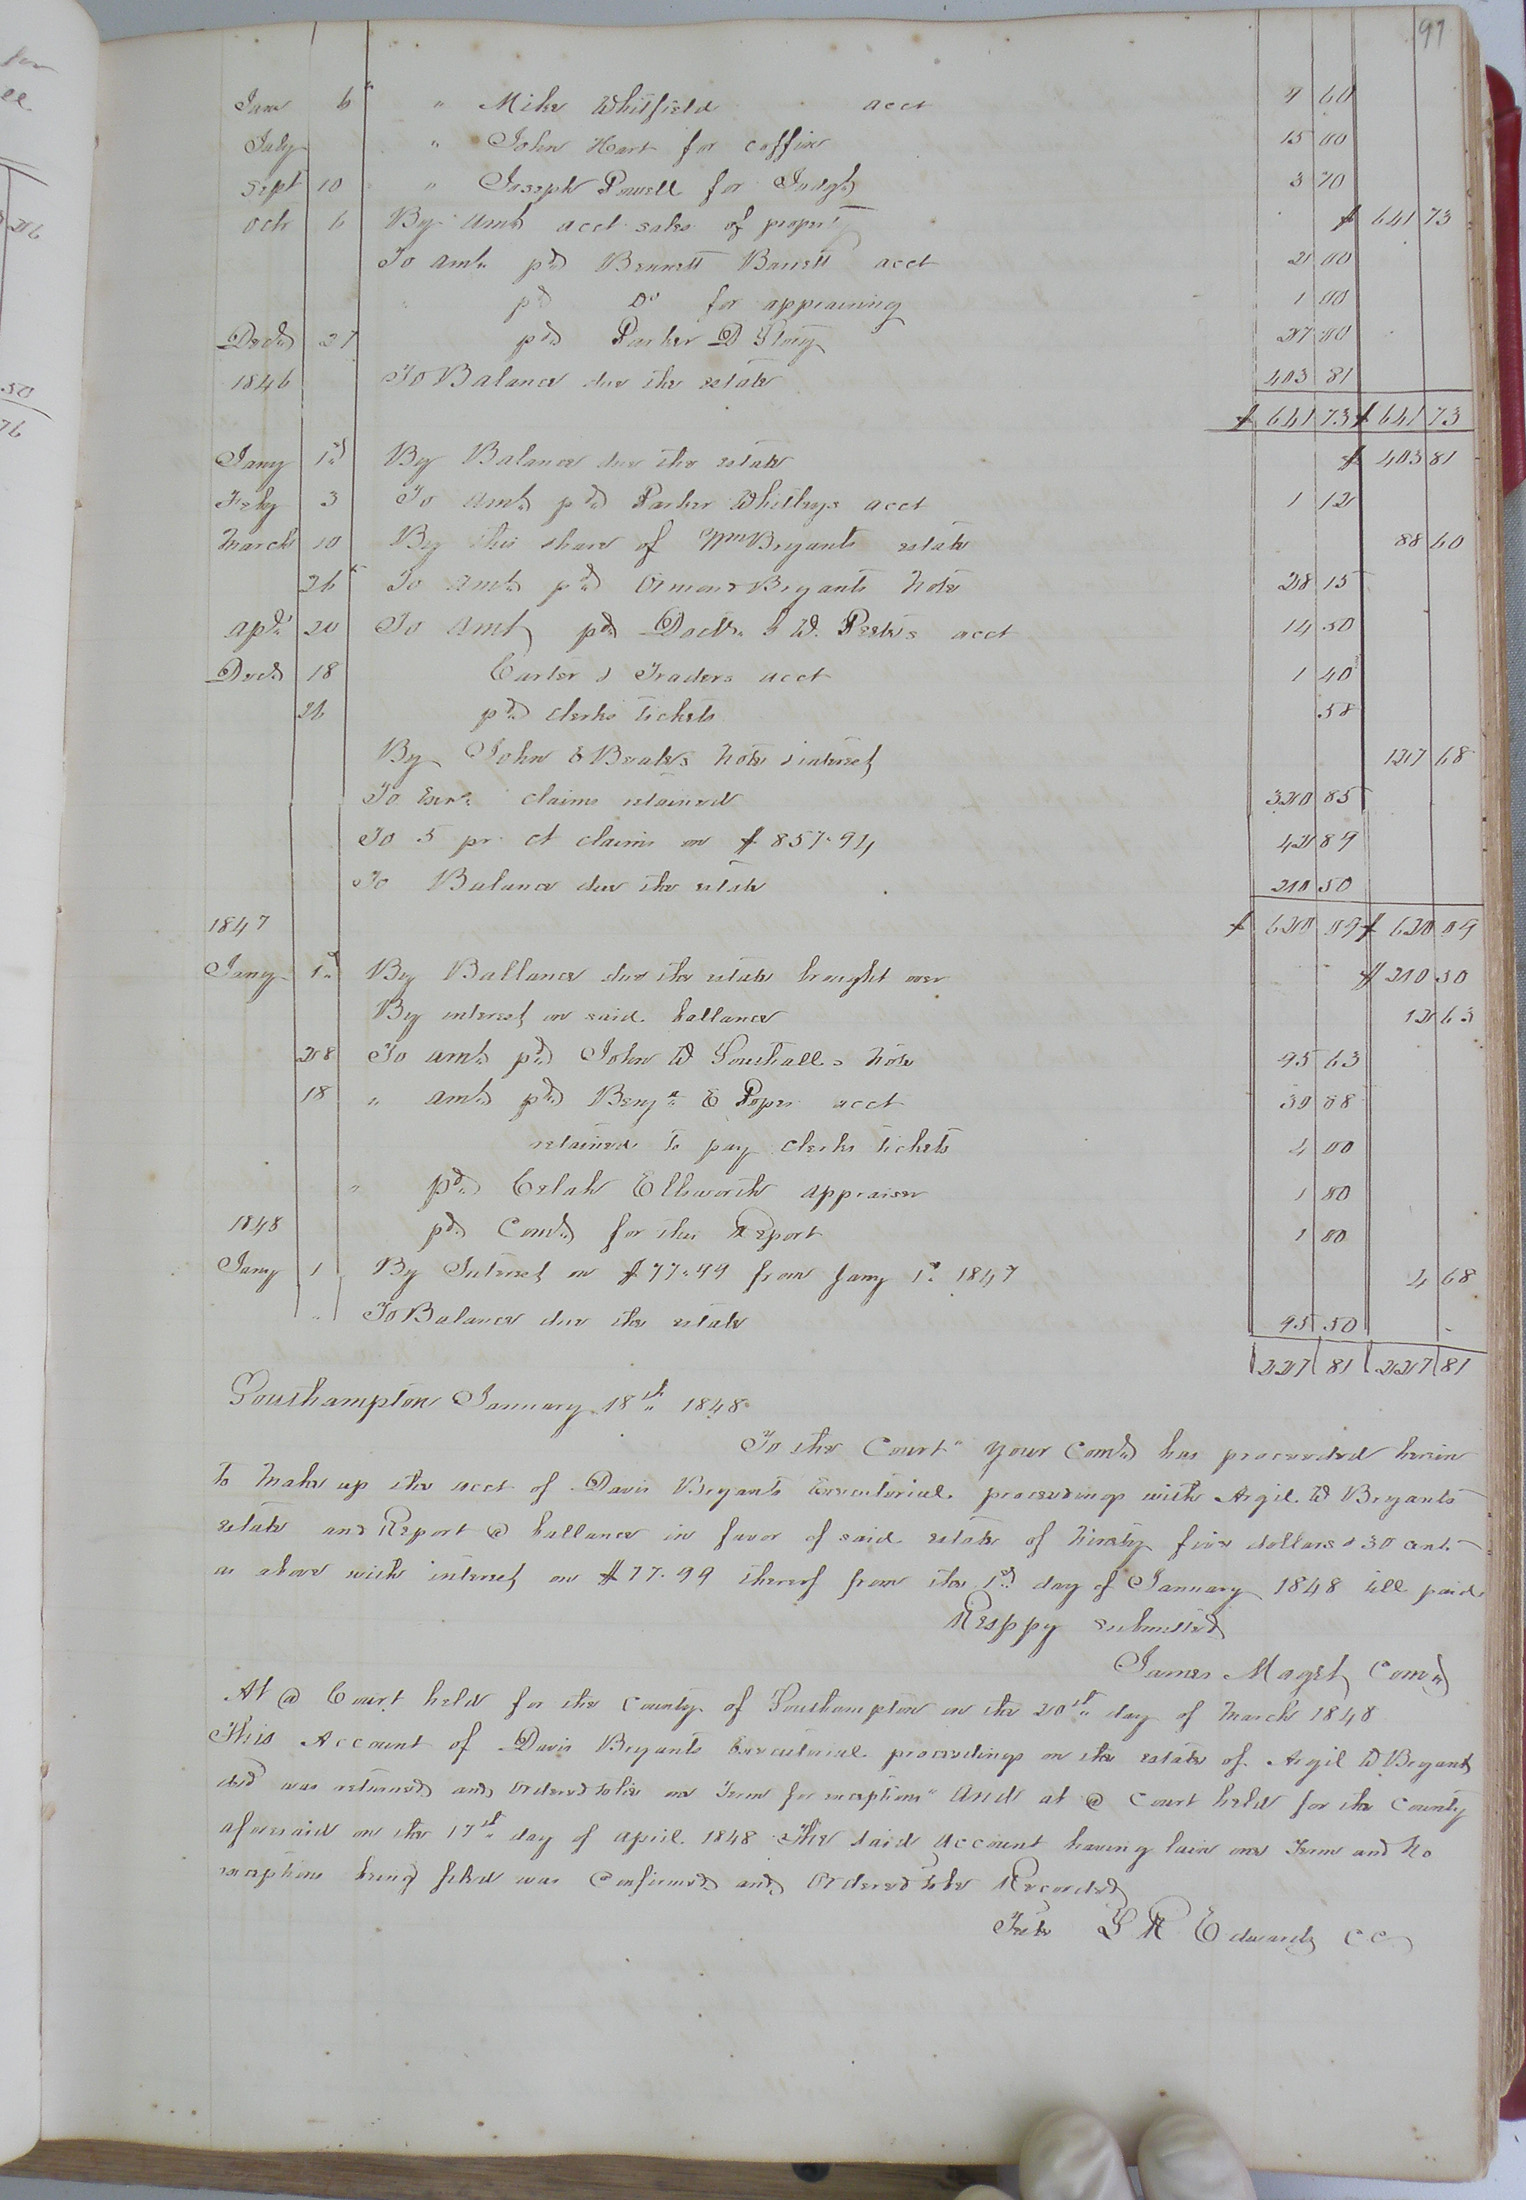 97
June 6 " Mike Whitfield acct 9 60
July " John Hart for coffin 15 00
Sept 10 " Joseph Powell for Judgt 3 70
Octr 6 By Amt acct sales of propert $ 641 73
To amt. pd Bennett Barrett acct 2 00
pd Do for appraising 1 00
Decr 27 pd Parker D 27 00
1846 To Balance due the estate 403 81
$ 641 73 $ 641 73
Jany 1st By Balance due the estate $ 403 81
Feby 3 To Amt pd Parker Whitleys acct 1 12
March 10 By this share of Wm Bryants estate 88 60
26 To Amt pd Ormond Bryants Note 28 15
Apl 20 To Amt pd Doctr W. Peetes acct 14 50
Decr 18 Carter & Traders acct 1 40
26 pd clerks tickets 58
By John E Beales Note & interest 127 68
To Exrs. claims retained 320 85
To 5 pr ct claims on $857.91, 42 89
To Balance due the estate 210 50
1847 $ 620 09 $ 620 09
Jany 1st By Ballance due the estate brought over $ 210 50
By interest on said ballance 12 63
28 To amt pd John W Southalls Note 95 63
18 " amt pd Benja E Popes acct 30 68
retained to pay clerks tickets 4 00
" pd Celah Ellsworth appraiser 1 00
1848 pd Comr for this Report 1 00
Jany 1 By Interest on $77.99 from Jany 1st 1847 4 68
" To Balance due the estate 95 50
227 81 227 81
Southampton January 18th 1848
To the Court" your Comr has proceeded herein
to make up the acct of Davis Bryants Executorial proceedings with Argil W Bryants
estate and Report a ballance in favor of said estate of Ninety five dollars & 50 cents
as above with interest on $77.99 thereof from the 1st day of January 1848 till paid
Resppy submitted
James Maget Comr
At a Court held for the County of Southampton on the 20th day of March 1848
This Account of Davis Bryants Executorial proceedings on the estate of Argil W Bryant
decd was returned and ordered to lie one Term for exceptions" And at a Court held for the County
aforesaid on the 17th day of April 1848 The said Account having lain one Term and No
exceptions being filed was Confirmed and Ordered to be Recorded
Teste L R Edwards CC